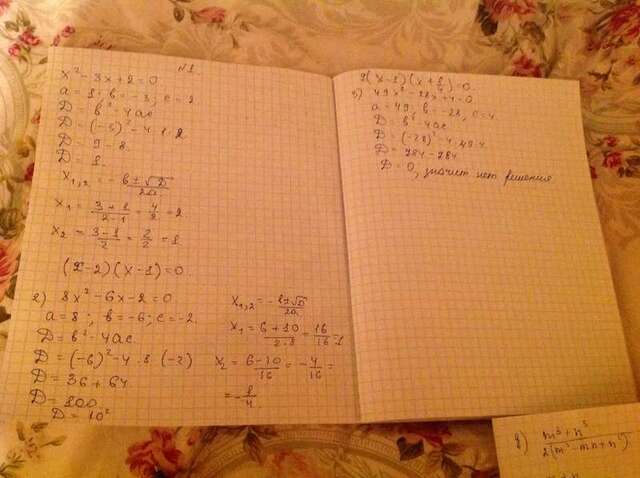 №1
x² - 3x + 2 = 0
a = 1; b = -3; c = 2
D = b² - 4ac
D = (-3)² - 4·1·2
D = 9 - 8
D = 1.
x₁,₂ = -b ± √D / 2a
x₁ = 3+1 / 2·1 = 4/2 = 2.
x₂ = 3-1 / 2 = 2/2 = 1
(x-2)(x-1) = 0
2) 8x² - 6x - 2 = 0
a = 8; b = -6; c = -2
D = b² - 4ac
D = (-6)² - 4·8·(-2)
D = 36 + 64
D = 100
D = 10²
x₁,₂ = -b ± √D / 2a
x₁ = 6+10 / 2·8 = 16/16 = 1
x₂ = 6-10 / 16 = -4/16 =
= -1/4.
(x-1)(x+1/4) = 0.
3) 49x² - 28x + 4 = 0
a = 49; b = -28, c = 4
D = b² - 4ac
D = (-28)² - 4·49·4
D = 784 - 784
D = 0, значит нет решения
m³ + n³
2(m² - mn + n²)